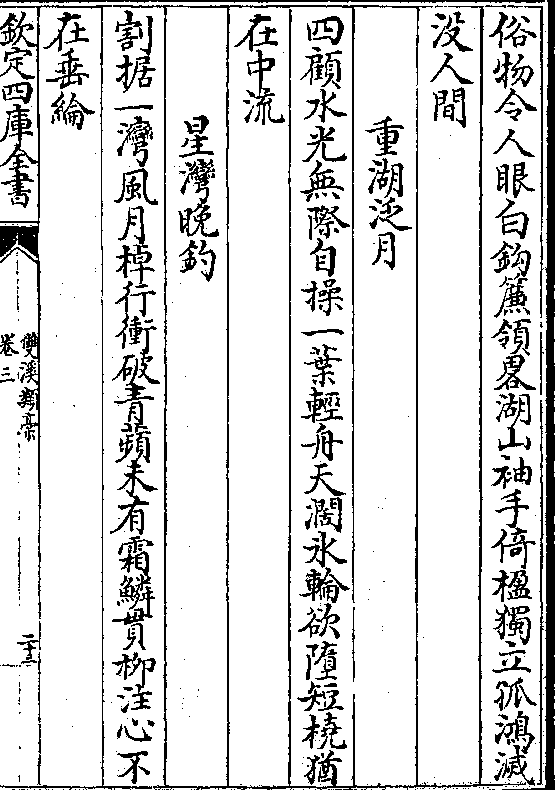 俗物令人眼白鈎簾領畧湖山袖手倚楹獨立孤鴻滅
没人間
重湖泛月
四顧水光無際自操一葉輕舟天濶氷輪欲墮短橈猶
在中流
星灣晚釣
割據一灣風月棹行衝破青蘋未有霜鱗貫柳注心不
在垂綸
欽定四庫全書
雙溪類稾
卷三
二十三